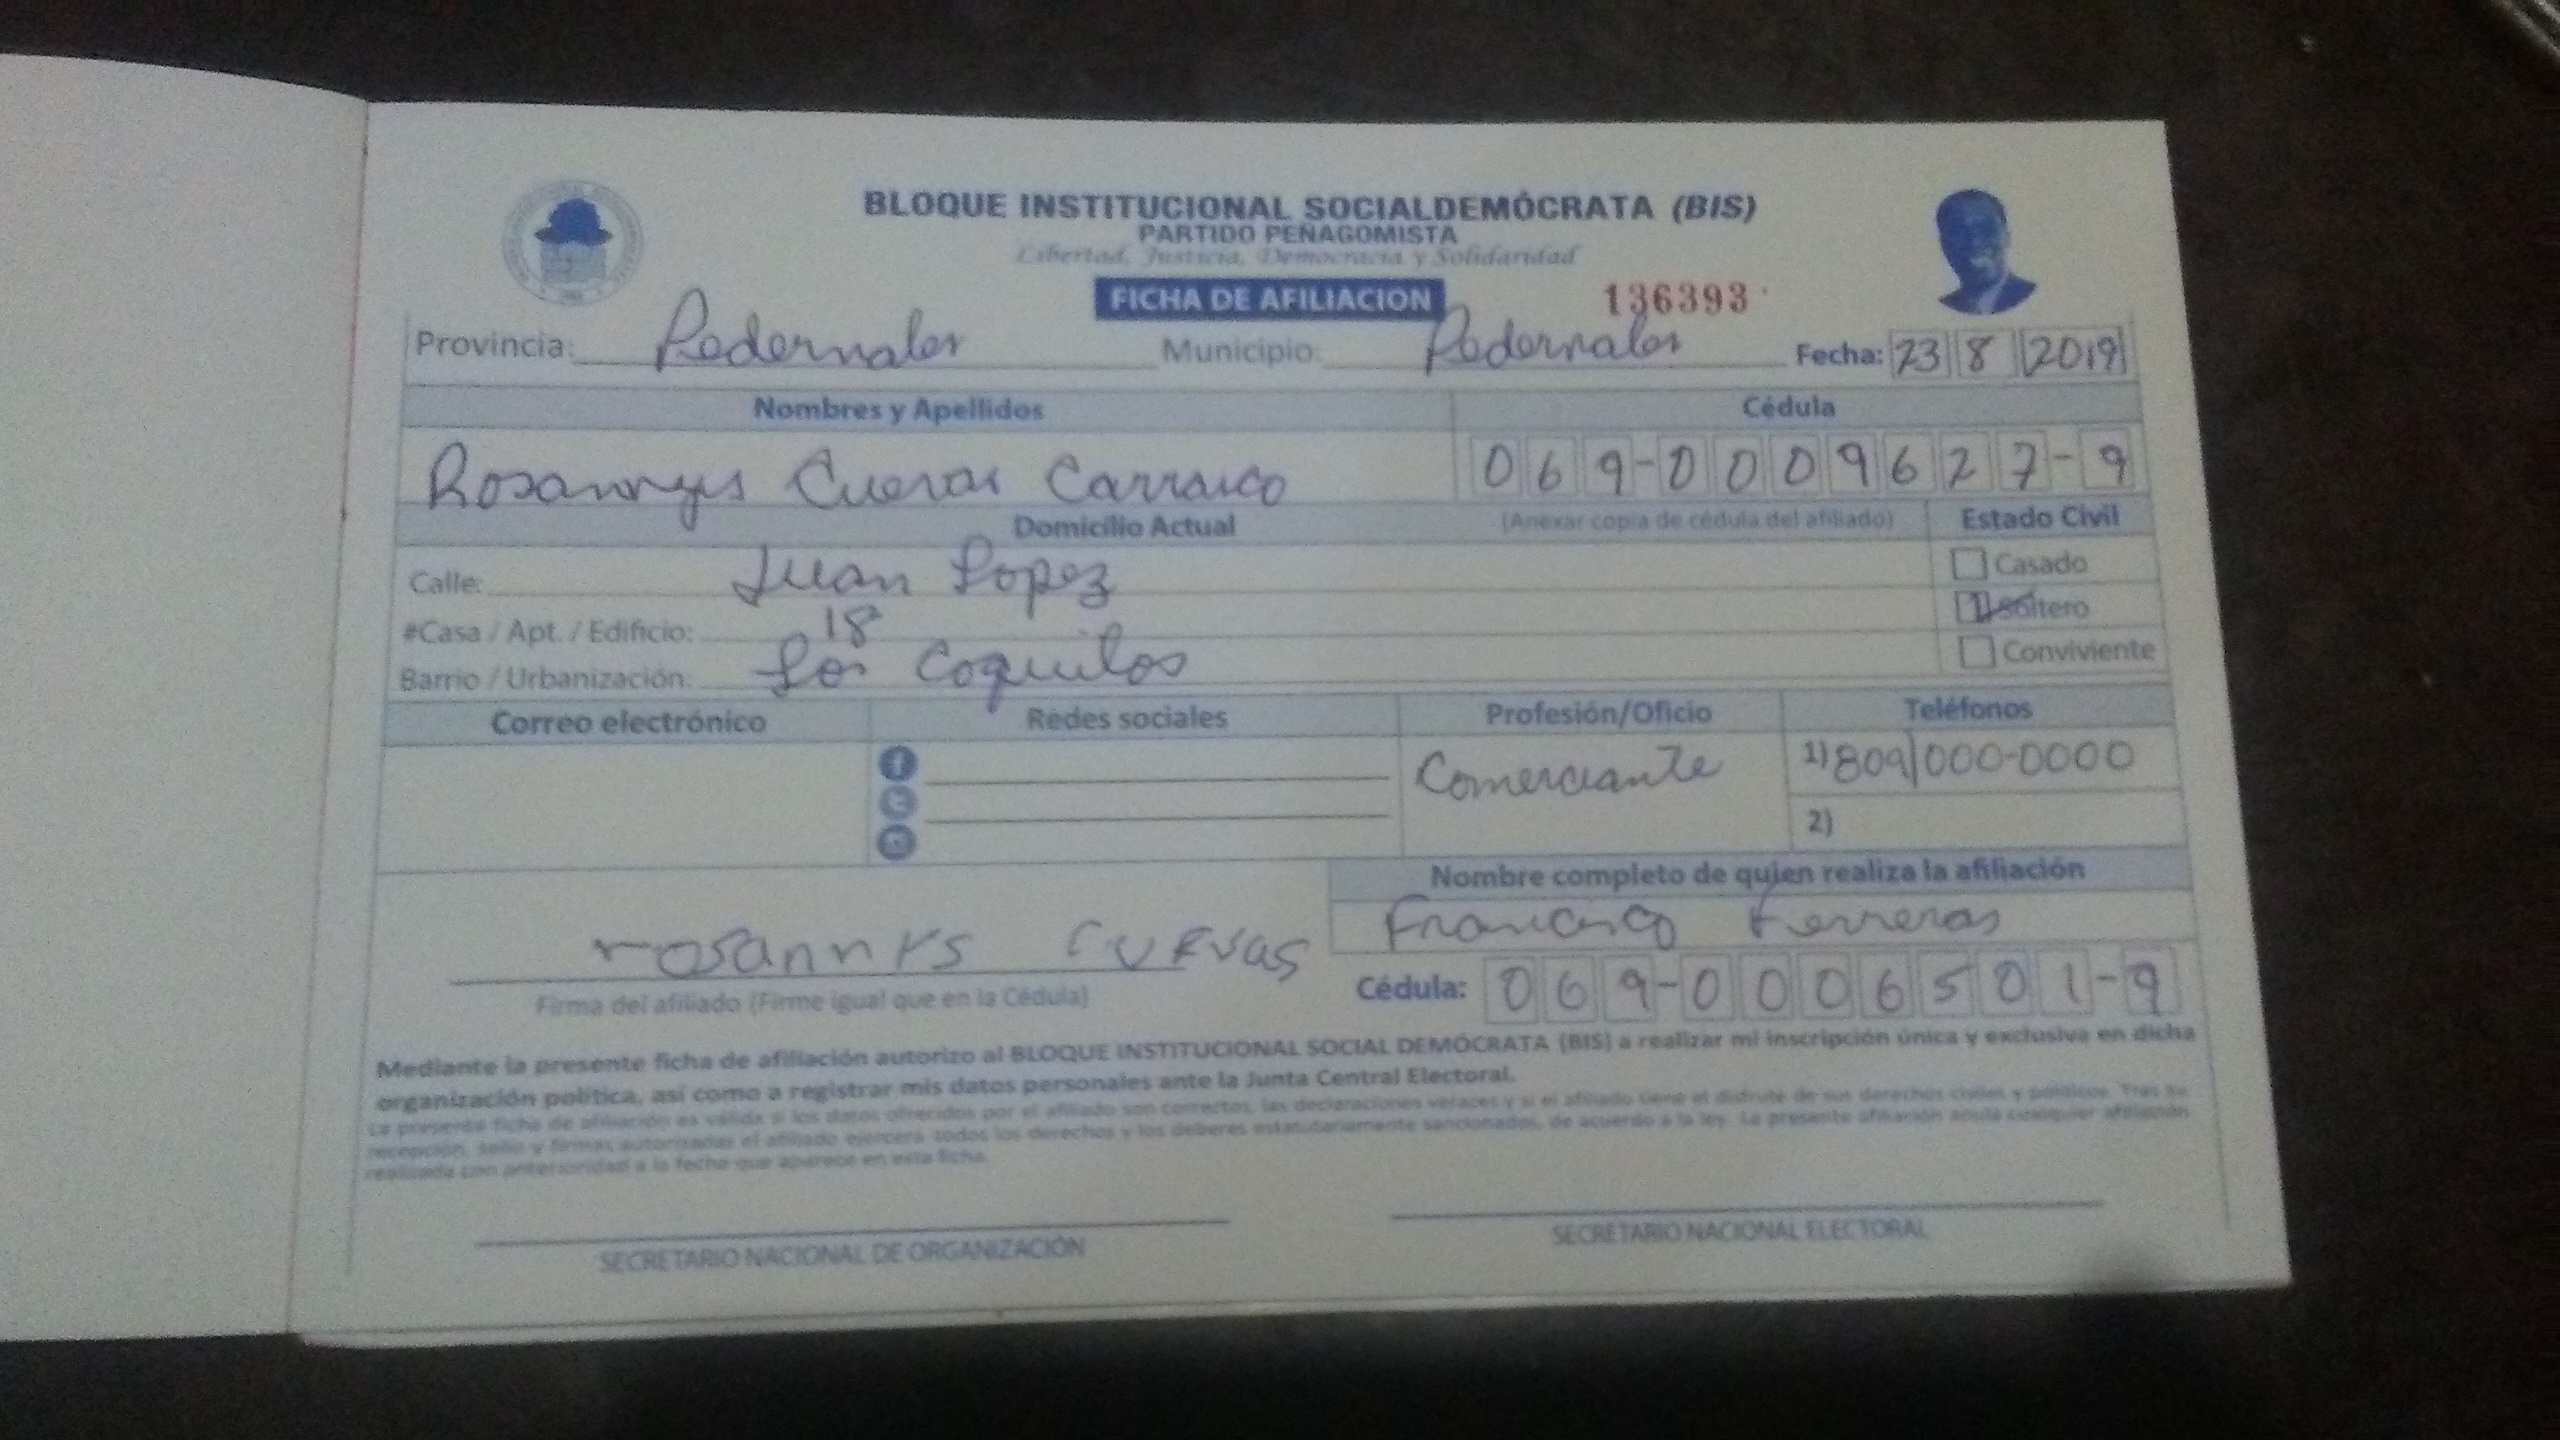 BLOQUE INSTITUCIONAL SOCIALDEMÓCRATA (BIS)
PARTIDO PEÑAGOMISTA
Libertad, Justicia, Democracia y Solidaridad
FICHA DE AFILIACION 136393
Provincia: Pedernales Municipio: Pedernales Fecha: 23 8 2019
Nombres y Apellidos Cédula
Rosannys Cuevas Carrasco 069-0009627-9
Domicilio Actual (Anexar copia de cédula del afiliado) Estado Civil
Calle: Juan Lopez Casado
#Casa / Apt. / Edificio: 18 Soltero
Barrio / Urbanización: Los Coquitos Conviviente
Correo electrónico Redes sociales Profesión/Oficio Teléfonos
Comerciante 1) 809 000-0000
2)
Nombre completo de quien realiza la afiliación
Francisco Ferreras
rosannys Cuevas
Firma del afiliado (Firme igual que en la Cédula) Cédula: 069-0006501-9
Mediante la presente ficha de afiliación autorizo al BLOQUE INSTITUCIONAL SOCIAL DEMÓCRATA (BIS) a realizar mi inscripción única y exclusiva en dicha
organización política, así como a registrar mis datos personales ante la Junta Central Electoral.
La presente ficha de afiliación es válida si los datos ofrecidos por el afiliado son correctos, las declaraciones veraces y si el afiliado tiene el disfrute de sus derechos civiles y políticos. Tras su
recepción, sello y firmas autorizadas el afiliado ejercerá todos los derechos y los deberes estatutariamente sancionados, de acuerdo a la ley. La presente afiliación anula cualquier afiliación
realizada con anterioridad a la fecha que aparece en esta ficha.
SECRETARIO NACIONAL DE ORGANIZACIÓN SECRETARIO NACIONAL ELECTORAL